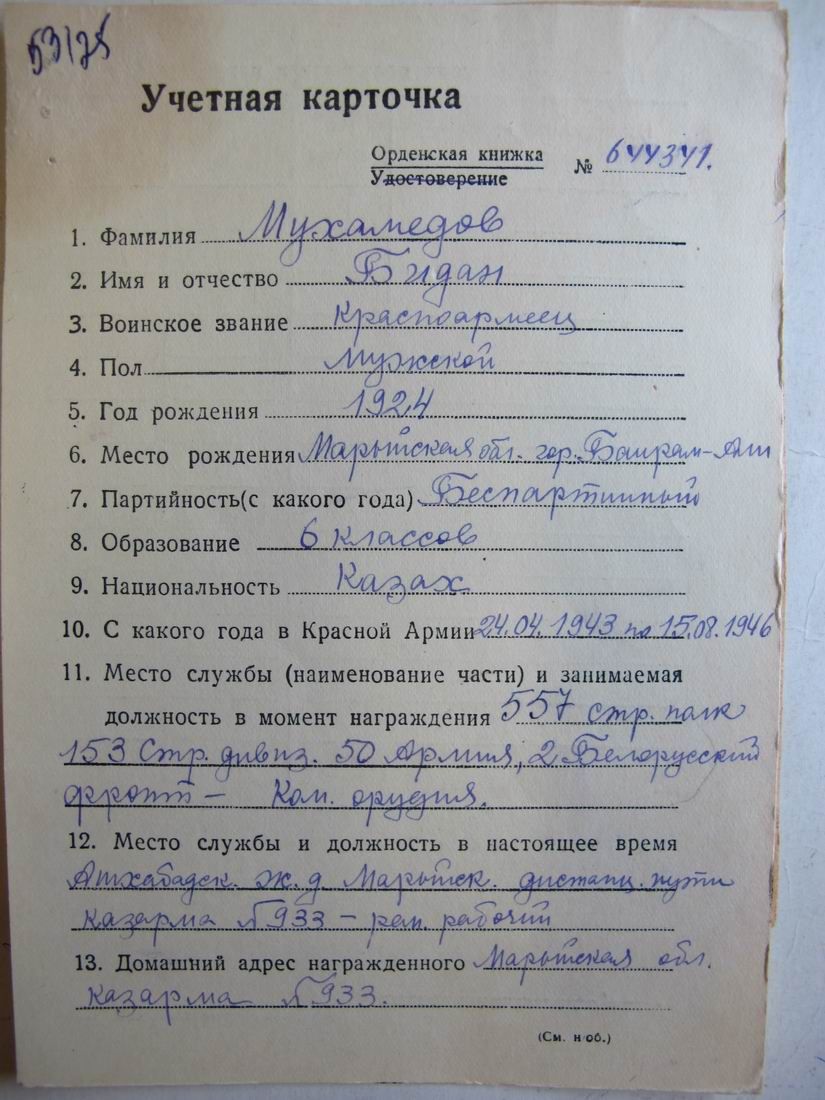 53175
Учетная карточка
Орденская книжка № 644341.
Удостоверение
1. Фамилия Мухамедов
2. Имя и отчество Бидан
3. Воинское звание Красноармеец
4. Пол Мужской
5. Год рождения 1924
6. Место рождения Марыйская обл. гор. Баирам-Али
7. Партийность (с какого года) Беспартийный
8. Образование 6 классов
9. Национальность Казах
10. С какого года в Красной Армии 24.04.1943 по 15.08.1946
11. Место службы (наименование части) и занимаемая
должность в момент награждения 557 стр. полк
153 Стр. дивиз. 50 Армия, 2 Белорусский
фронт – Ком. орудия.
12. Место службы и должность в настоящее время
Ашхабадск. ж.д. Марыйск. дистанц. пути
казарма №933 – рем. рабочий
13. Домашний адрес награжденного Марыйская обл.
казарма №933.
(См. н об.)